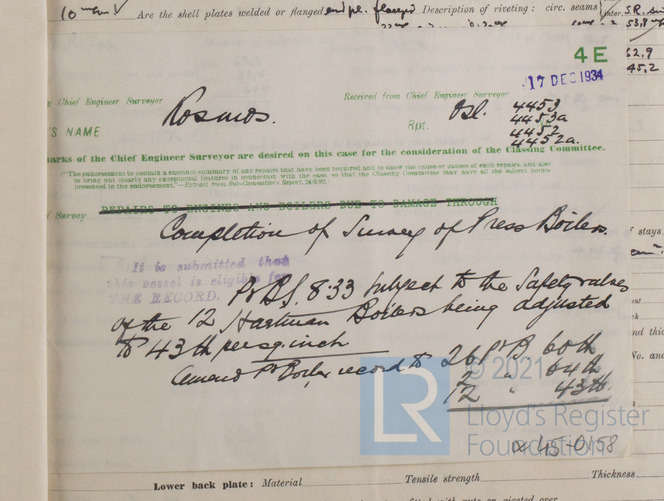 10 mm Are the shell plates welded or flanged end pl. flanged Description of riveting: circ. seams
S.R.
53.8
52.9
45.2
4E
-17 DEC 1934
y Chief Engineer Surveyor Received from Chief Engineer Surveyor
'S NAME Kosmos. Rpt. Osl. 4453
4453a
4452
4452a.
marks of the Chief Engineer Surveyor are desired on this case for the consideration of the Classing Committee.
("The endorsement to contain a succinct summary of any repairs that have been required and to show the cause or causes of such repairs, and also
to bring out clearly any exceptional features in connection with the case, so that the Classing Committee may have all the salient points
presented in the endorsement."—Extract from Sub-Committee's Report,
of Survey REPAIRS TO ENGINES AND BOILERS DUE TO DAMAGE THROUGH
Completion of Survey of Press Boilers.
It is submitted that
this vessel is eligible for
THE RECORD. Pr BS. 8.33 subject to the Safety valves
of the 12 Hartman Boilers being adjusted
to 43 lb per sq inch
Amend Pr Boiler record to 26 Pr B 60 lb
2 " 64 lb
12 " 43 lb.
© 2021
LR
Lloyd's Register
Foundation
45-0158
f stays
No. and
thick
Lower back plate: Material Tensile strength Thickness